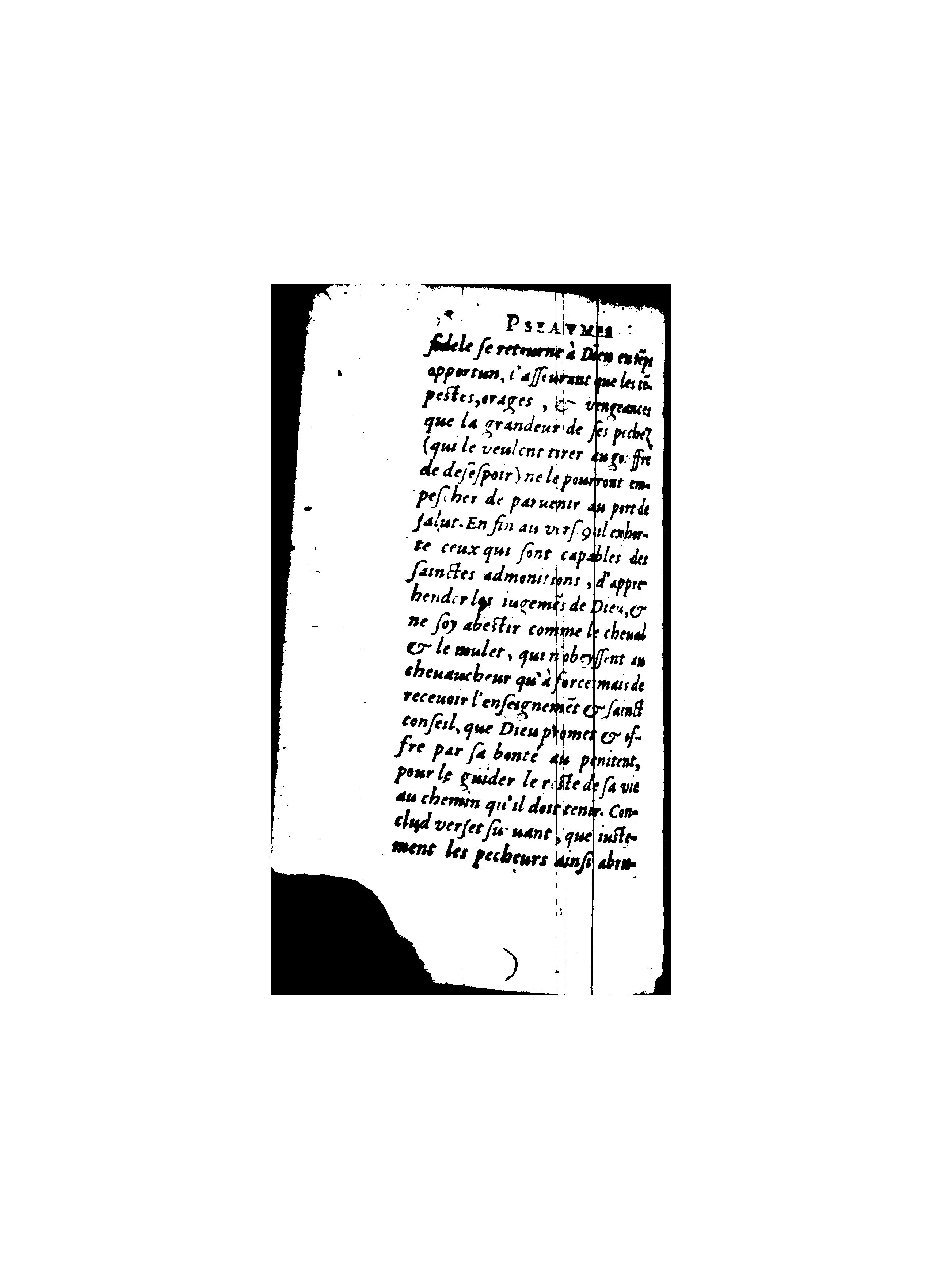 PSEAVMES
fidele se retourne à Dieu en tẽps
opportun, s'asseurant que les tẽ-
pestes, orages, & vengeances
que la grandeur de ses pechez
(qui le veulent tirer au gouffre
de desespoir) ne le pourront em-
pescher de paruenir au port de
salut. En fin au vers 9 il exhor-
te ceux qui sont capables des
sainctes admonitions, d'appre-
hender les iugemẽs de Dieu, &
ne soy abestir comme le cheual
& le mulet, qui n'obeyssent au
cheuaucheur qu'à force: mais de
receuoir l'enseignemẽt & sainct
conseil, que Dieu promet & of-
fre par sa bonté au penitent,
pour le guider le reste de sa vie
au chemin qu'il doit tenir. Con-
clud verset suiuant, que iuste-
ment les pecheurs ainsi abru-